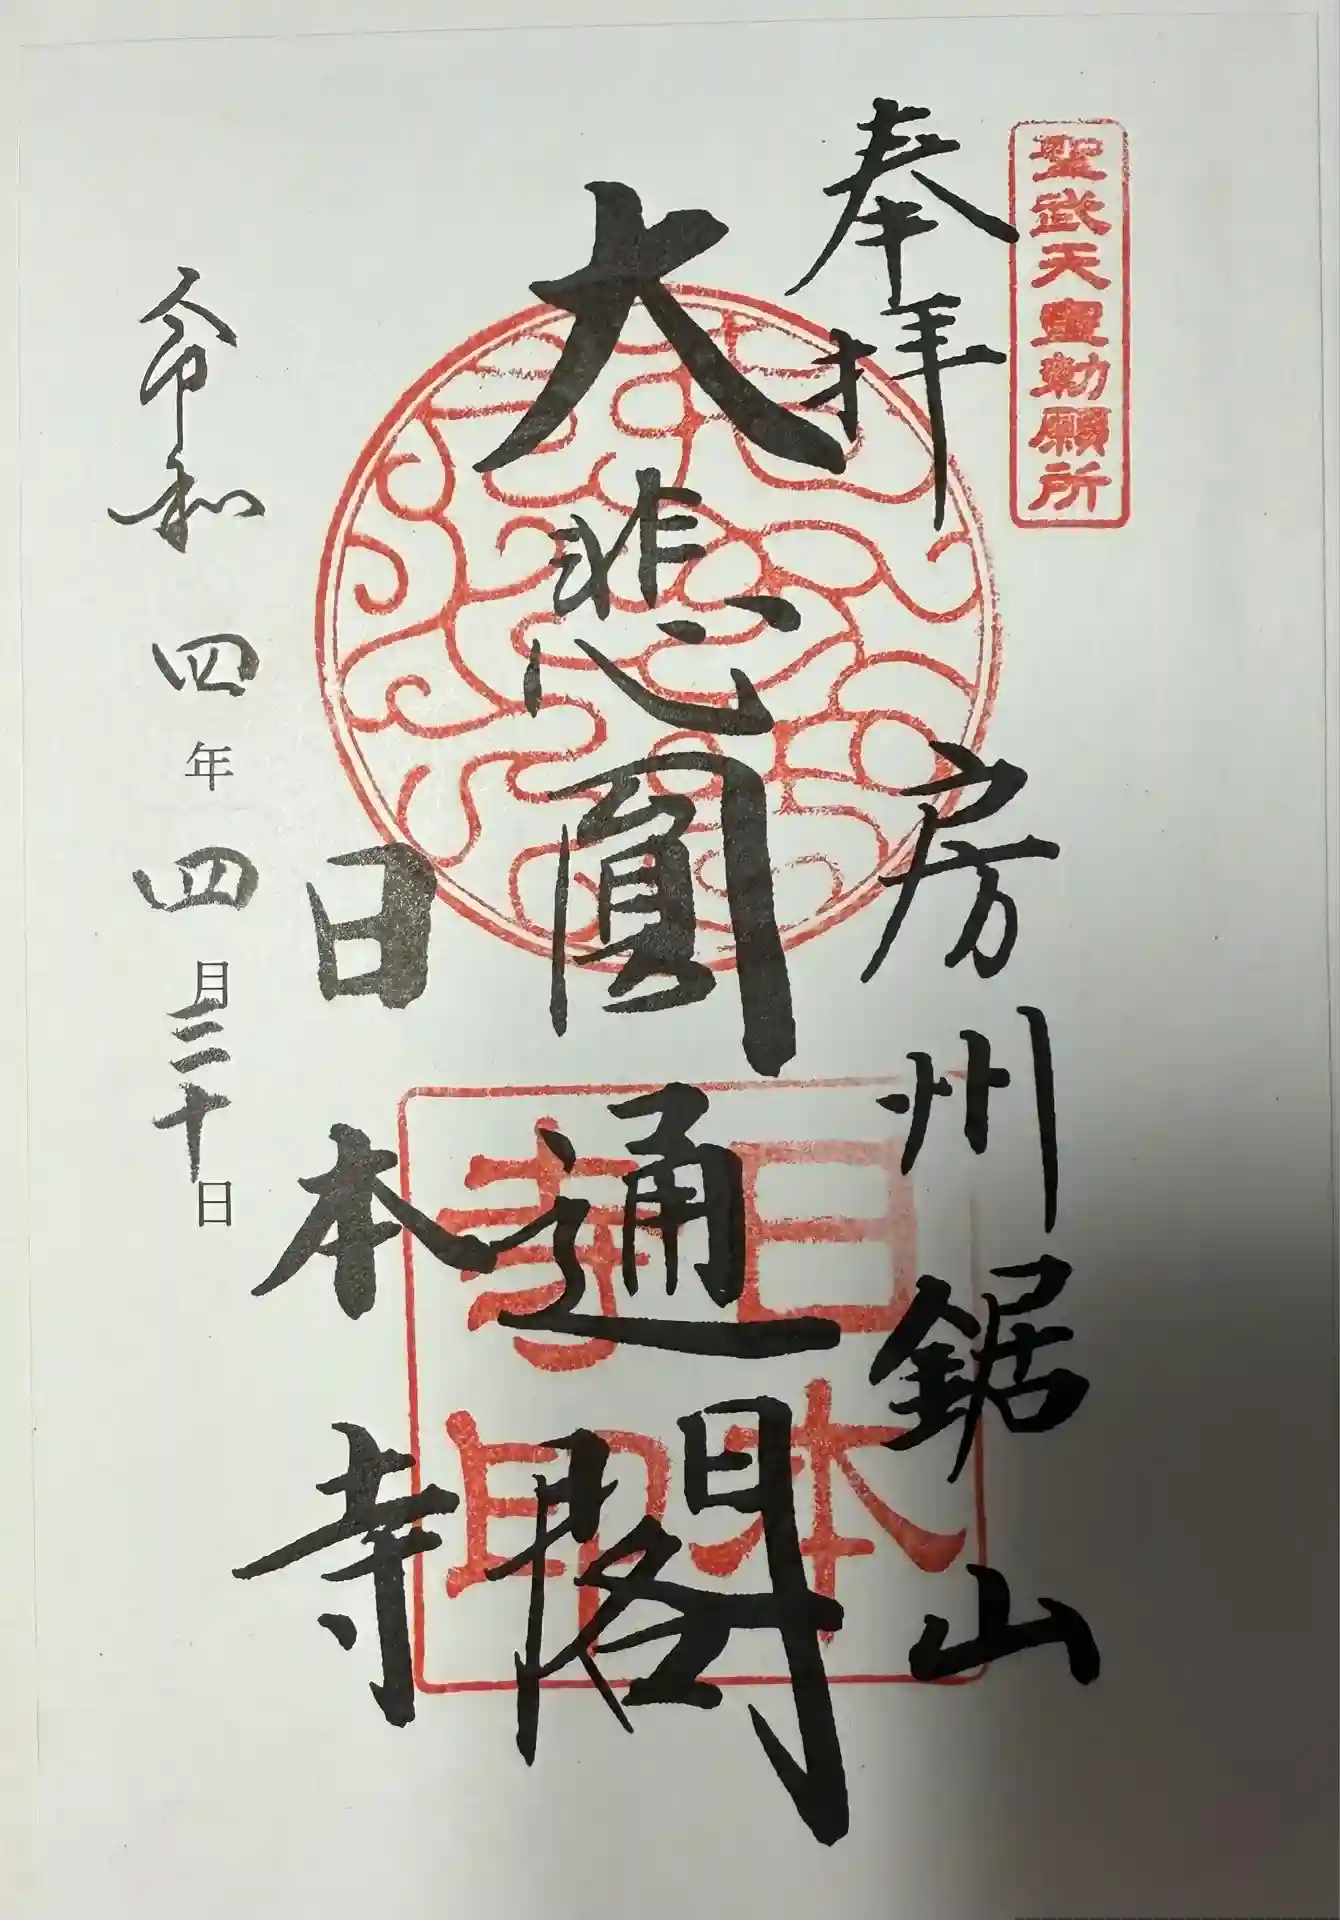 聖武天皇勅願所
奉拝
房州鋸山
大悲圓通閣
日本寺印
日本寺
令和四年四月三十日